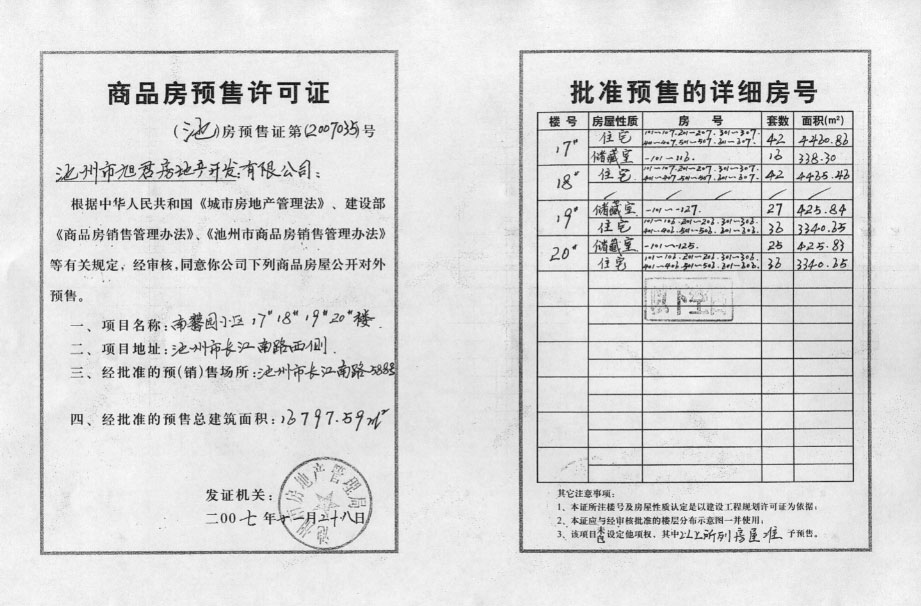 商品房预售许可证
(池)房预售证第(2007035)号
池州市旭君房地产开发有限公司：
根据中华人民共和国《城市房地产管理法》、建设部
《商品房销售管理办法》、《池州市商品房销售管理办法》
等有关规定，经审核，同意你公司下列商品房屋公开对外
预售。
一、项目名称：南馨园小区17#18#19#20#楼
二、项目地址：池州市长江南路西侧.
三、经批准的预(销)售场所：池州市长江南路588#
四、经批准的预售总建筑面积：16797.59㎡
发证机关：
二00七年十一月二十八日
池州市房地产管理局
批准预售的详细房号
楼号 房屋性质 房号 套数 面积(m²)
17# 住宅 101~107.201~207.301~307. 401~407.501~507.601~607. 42 4460.86
储藏室 -101~-116. 16 338.30
18# 住宅 101~107.201~207.301~307. 401~407.501~507.601~607. 42 4465.46
19# 储藏室 -101~-127. 27 425.84
住宅 101~106.201~206.301~306. 401~406.501~506.601~606. 36 3340.65
20# 储藏室 -101~-125. 25 425.83
住宅 101~106.201~206.301~306. 401~406.501~506.601~606. 36 3340.65
以下空白
其它注意事项：
1、本证所注楼号及房屋性质认定是以建设工程规划许可证为依据；
2、本证应与经审核批准的楼层分布示意图一并使用；
3、该项目未设定他项权，其中以上所列房屋准予预售。